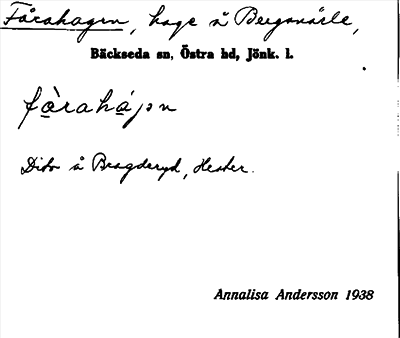 Fårahagen, hage å Bergsnärle,
Bäckseda sn, Östra hd, Jönk. l.
fàrahájən
Dito å Bragderyd, Hester.
Annalisa Andersson 1938